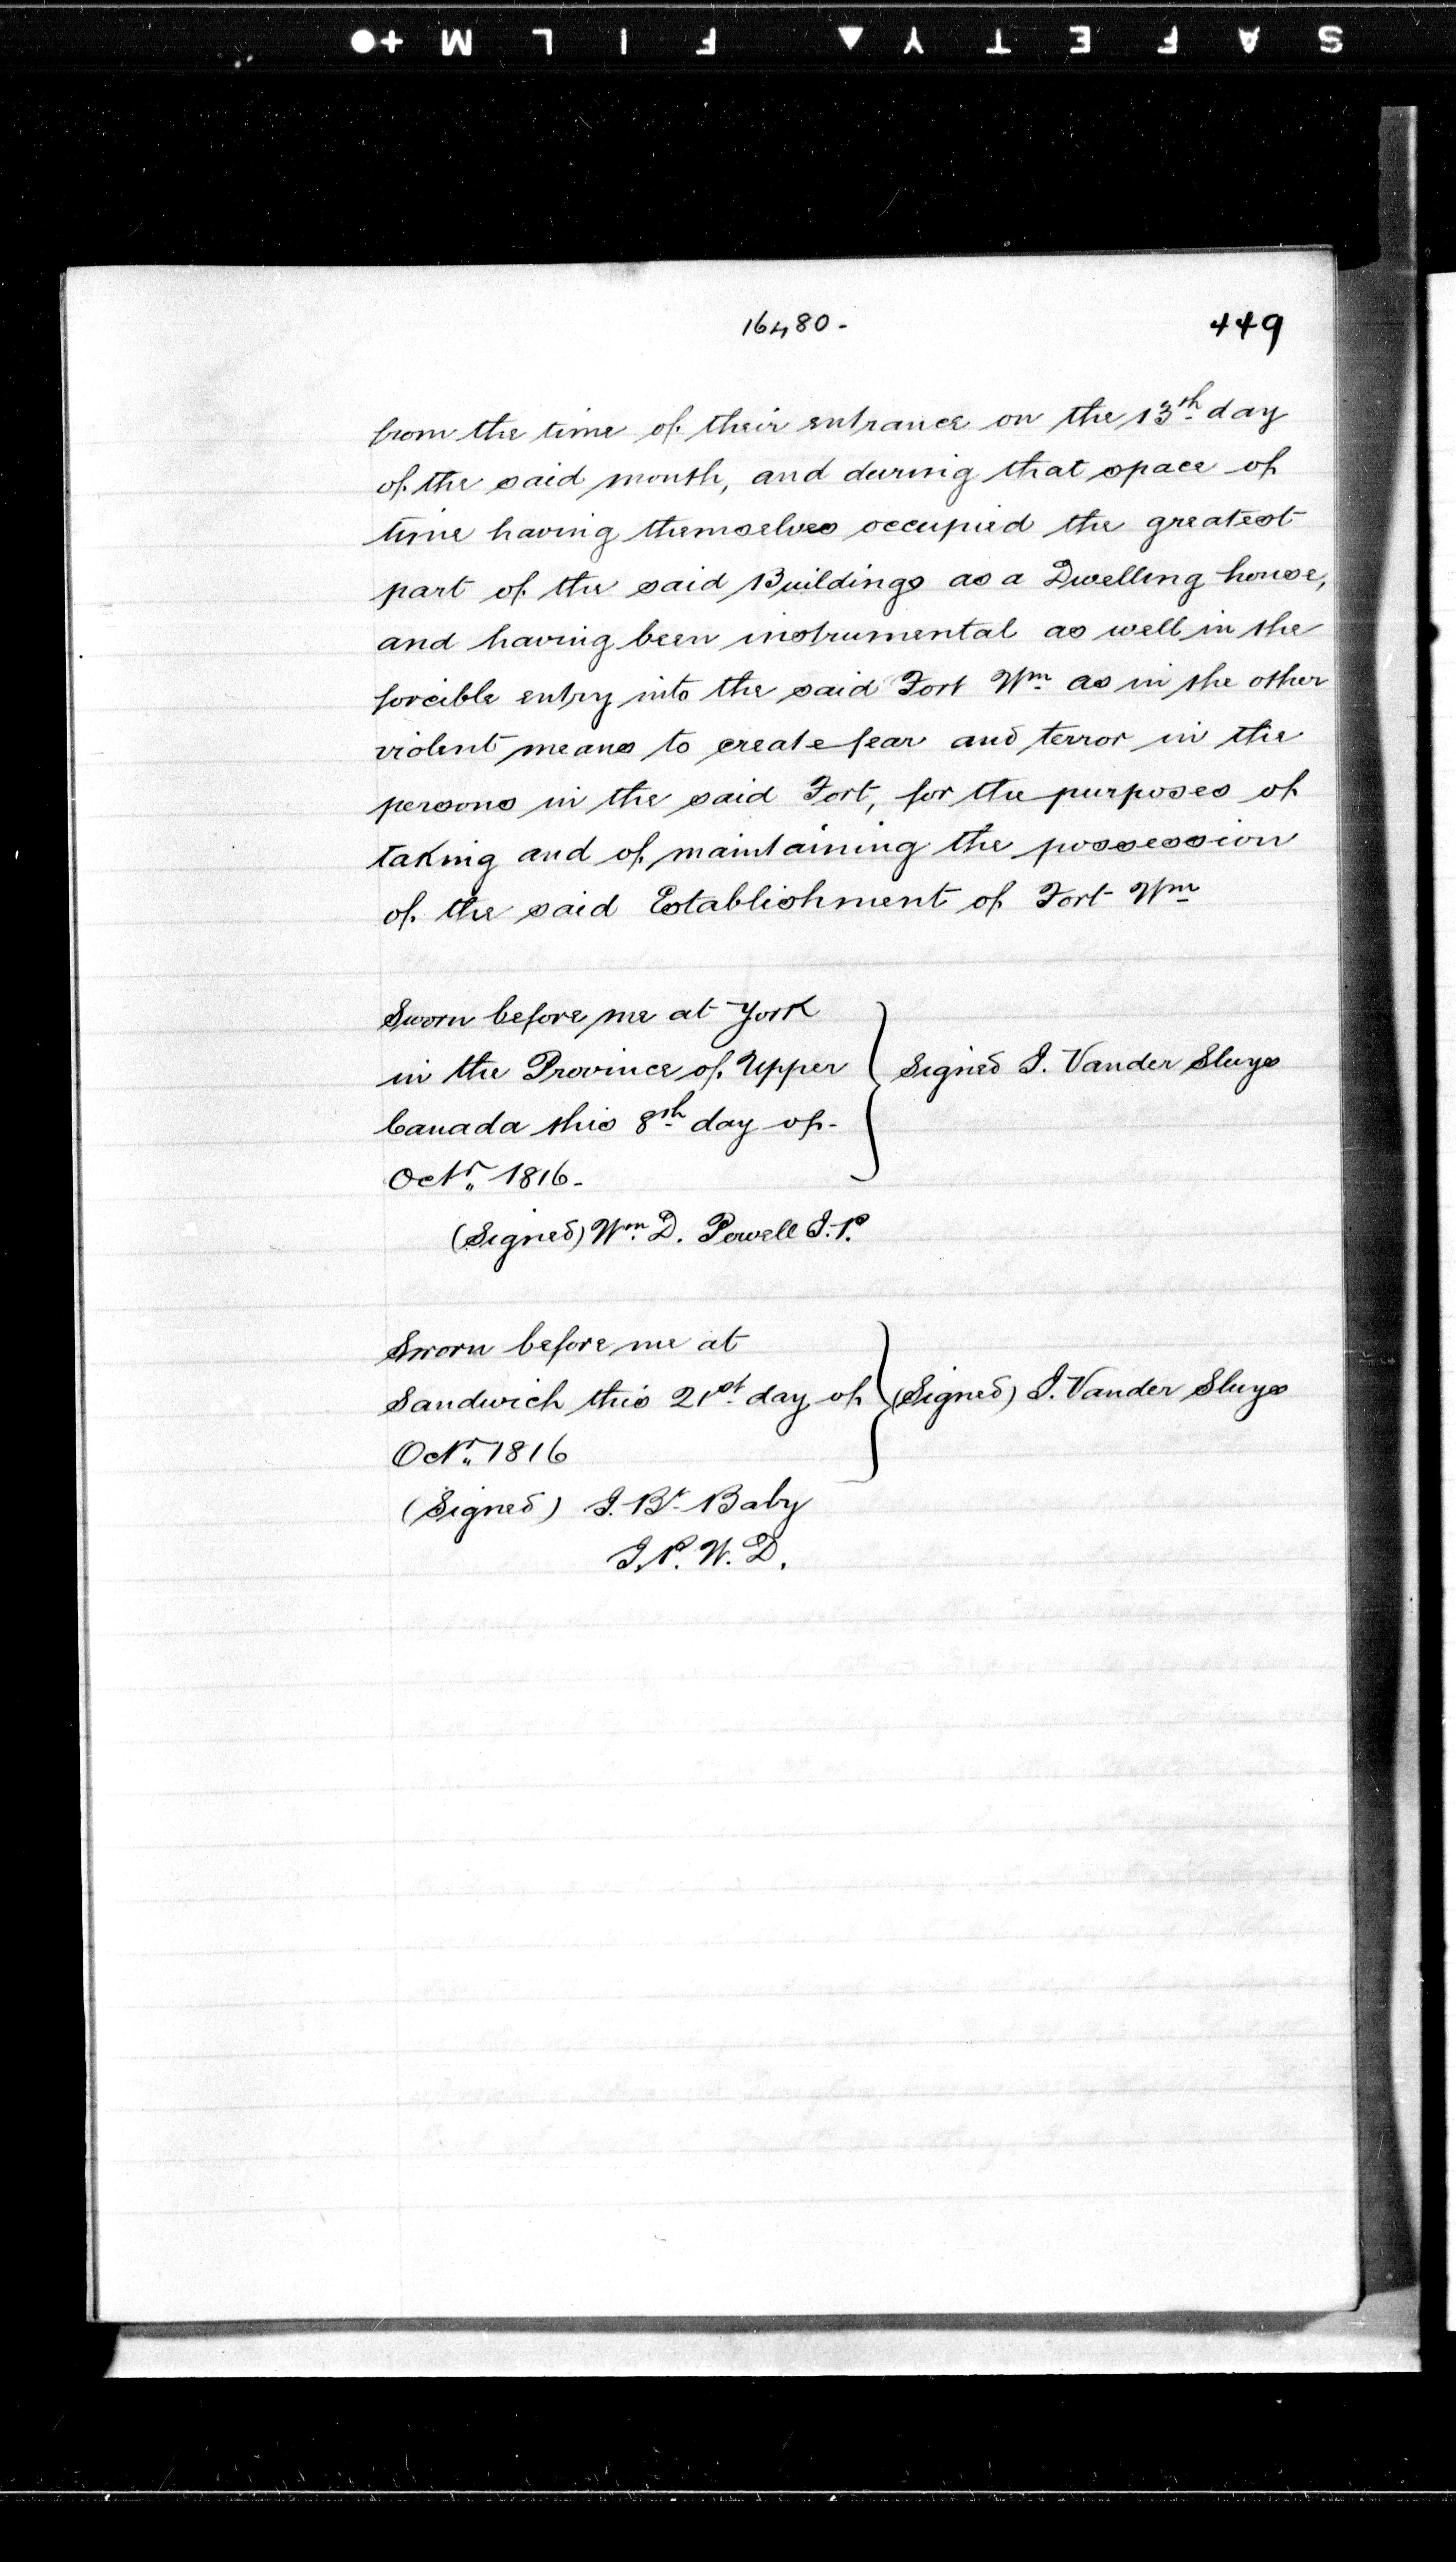 SAFETY▲ FILM+●
16480-
449
from the time of their entrance on the 13th day
of the said month, and during that space of
time having themselves occupied the greatest
part of the said Buildings as a Dwelling house,
and having been instrumental as well in the
forcible entry into the said Fort Wm as in the other
violent means to create fear and terror in the
persons in the said Fort, for the purposes of
taking and of maintaining the possession
of the said Establishment of Fort Wm
Sworn before me at York
in the Province of Upper
Canada this 8th day of
Octr 1816.
Signed J. Vander Sluys
(Signed) Wm. D. Powell J.P.
Sworn before me at
Sandwich this 21st day of
Octr 1816
(Signed) J. Vander Sluys
(Signed) J. Bt Baby
J.P. W.D.